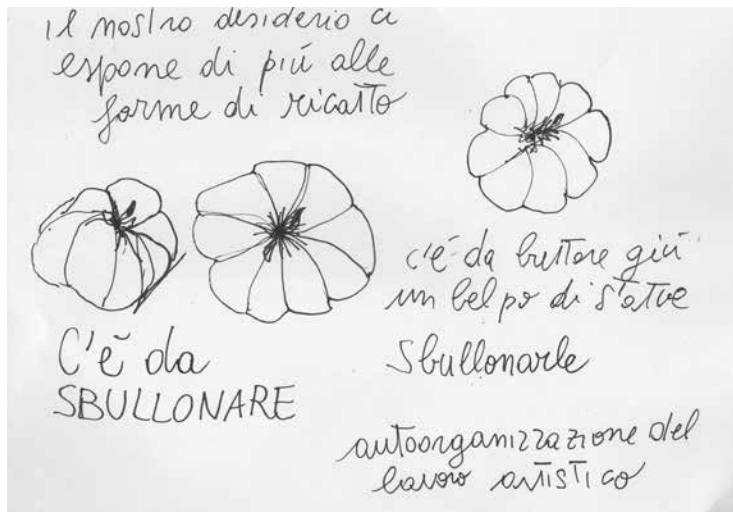 il nostro desiderio ci
espone di più alle
forme di ricatto
c'è da buttare giù
un bel po di statue
C'è da
SBULLONARE
Sbullonarle
autoorganizzazione del
lavoro artistico